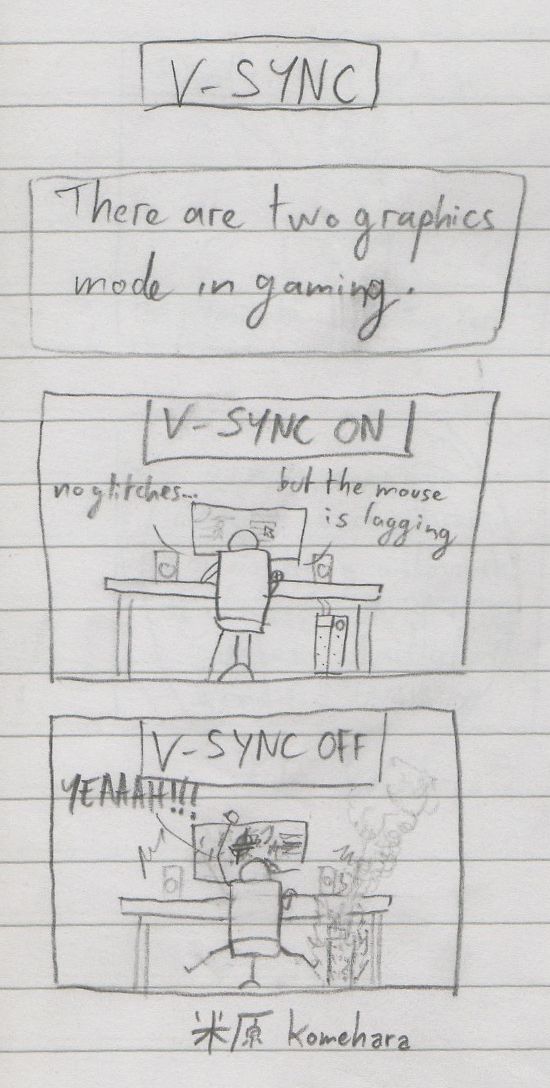 V-SYNC
There are two graphics
mode in gaming.
V-SYNC ON
no glitches...
but the mouse
is lagging
V-SYNC OFF
YEAAAH!!!
米原 komehara